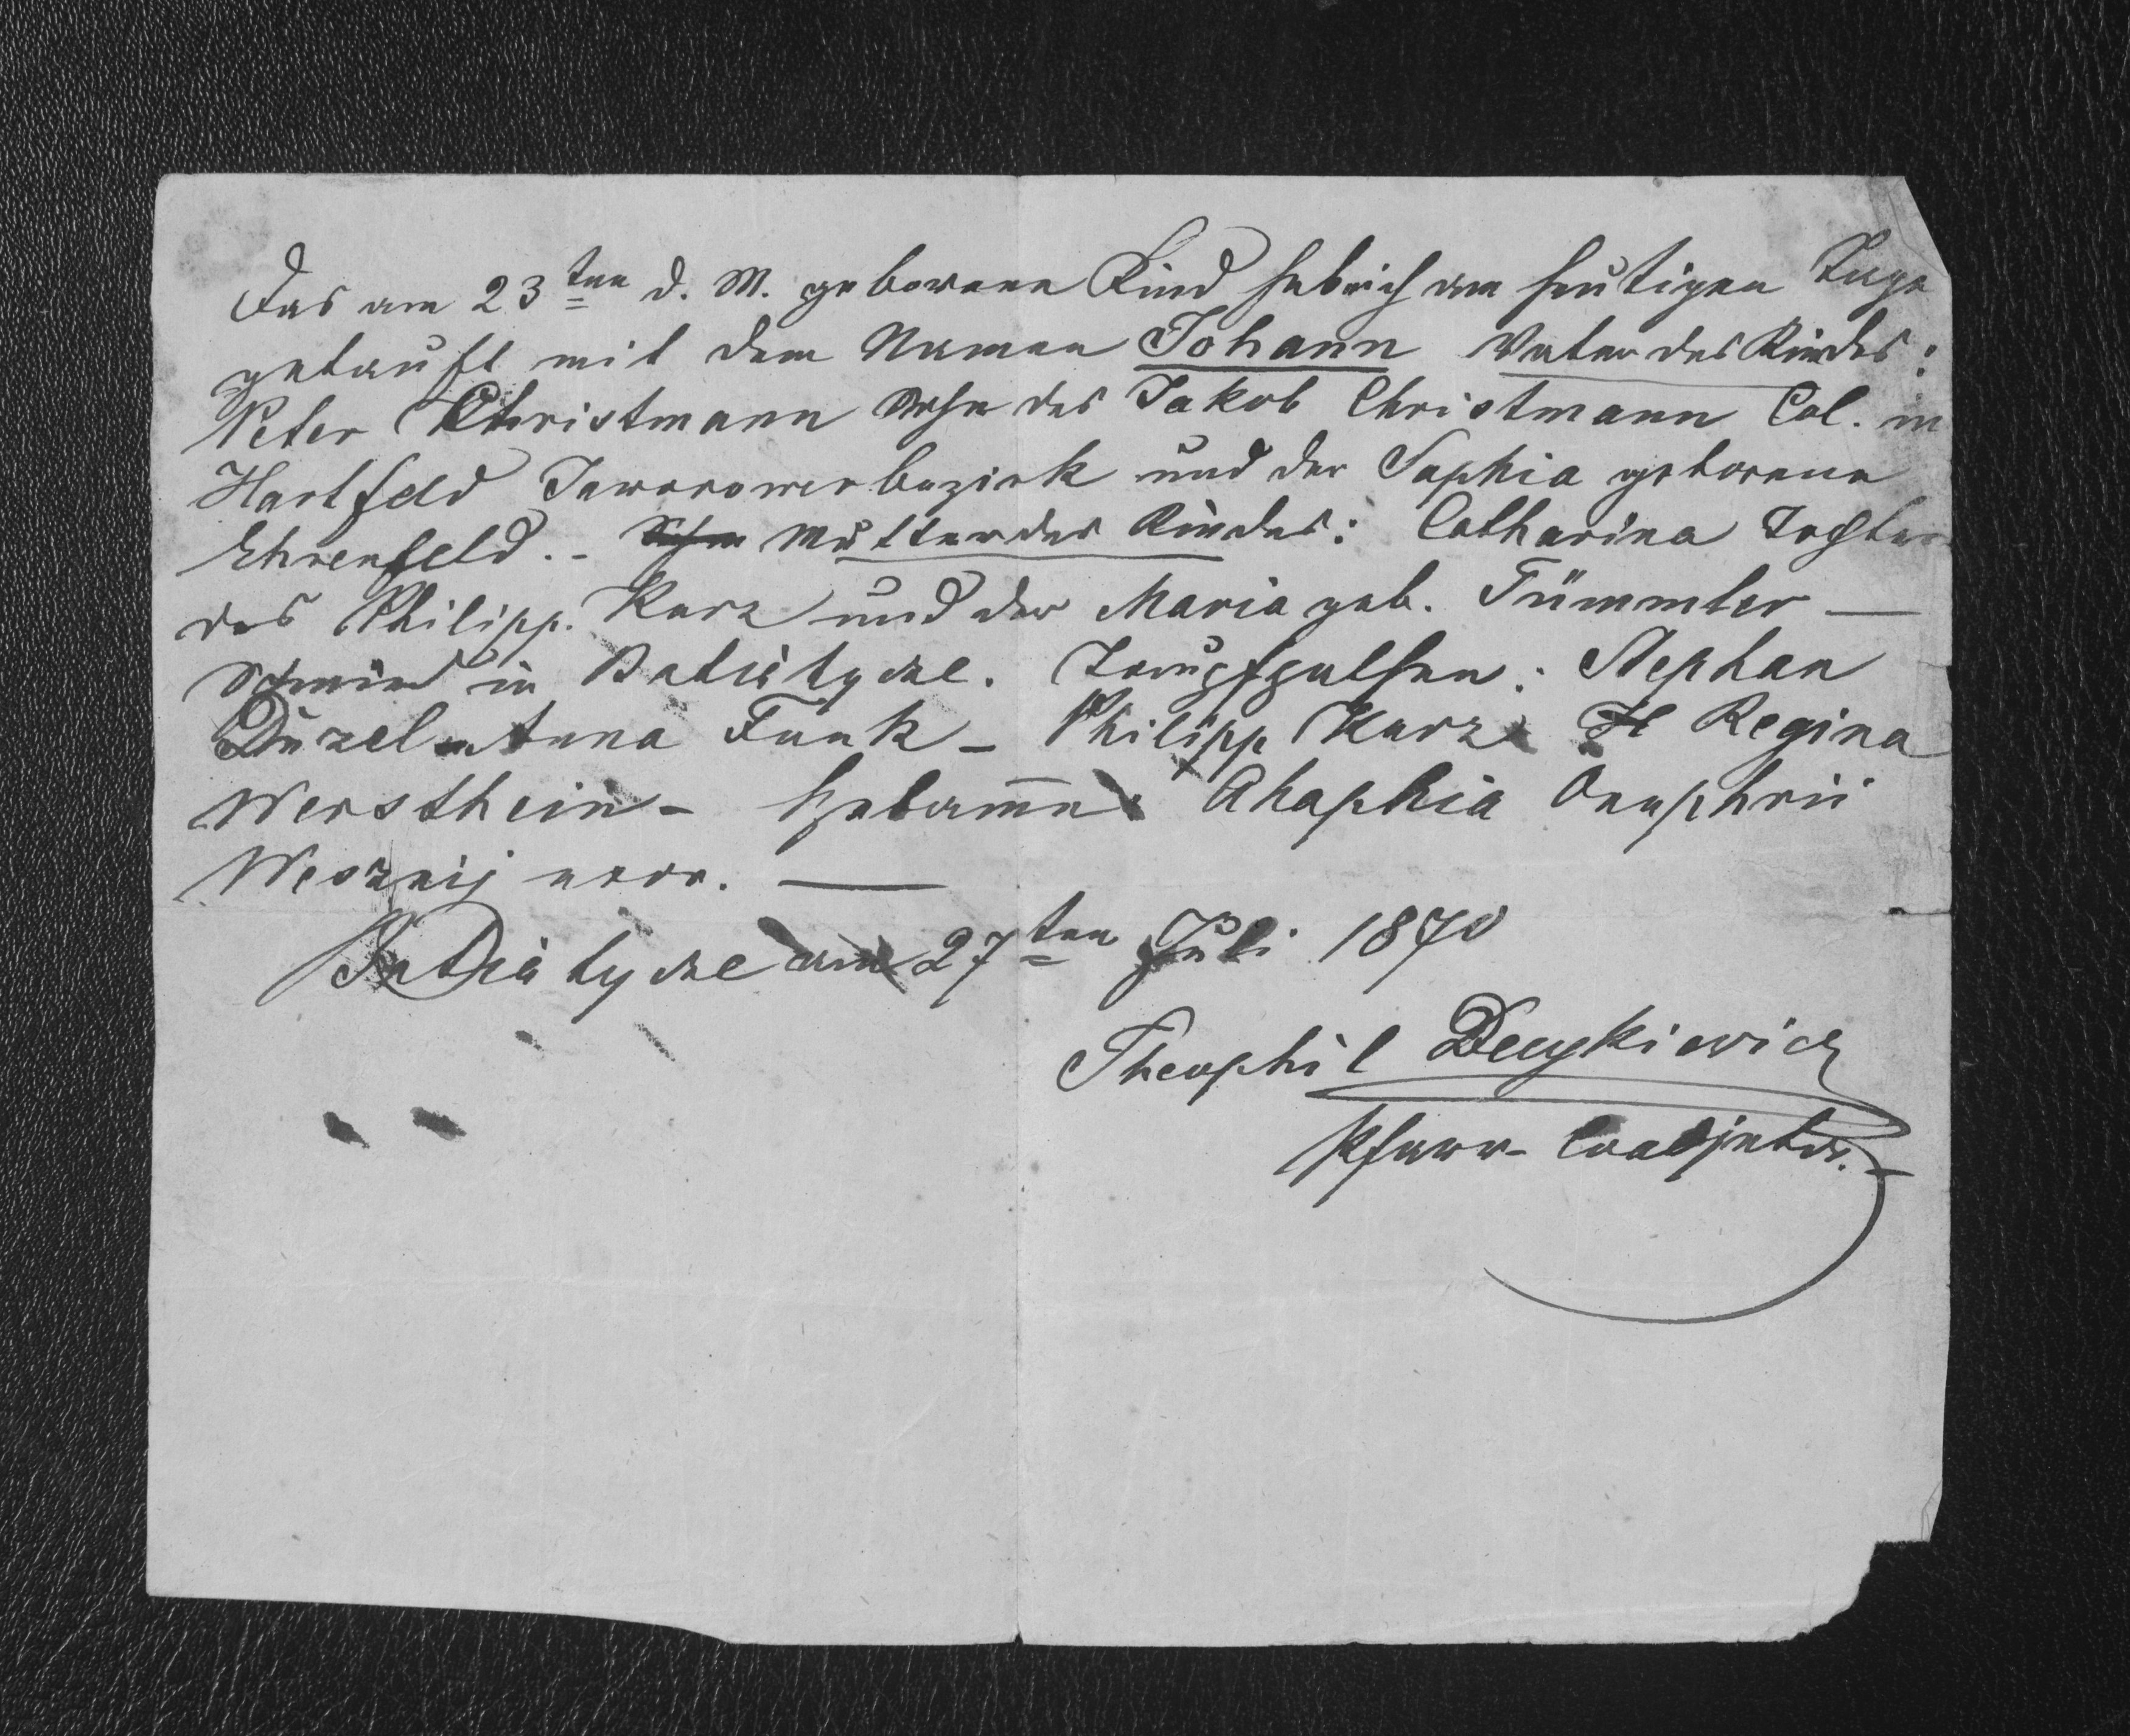 Das am 23ten d. M. geborene Kind habe ich am heutigen Tage
getauft mit dem Namen Johann Vater des Kindes:
Peter Christmann Sohn des Jakob Christmann Col. in
Hartfeld Jaworower bezirk und der Sophia geborene
Ehrenfeld. - Mutter des Kindes: Catharina Tochter
des Philipp Kurz und der Maria geb. Tümmler —
Schmied in Taufzeugen: Stephan
Anna Funk - Philipp Kurz Regina
Wersthein - Hebamme Ahaphia Onuphrii
Wesznij uxor. —
am 27ten Juli 1870
Theophil Decykiewicz
Pfarr- Coadjutor. -